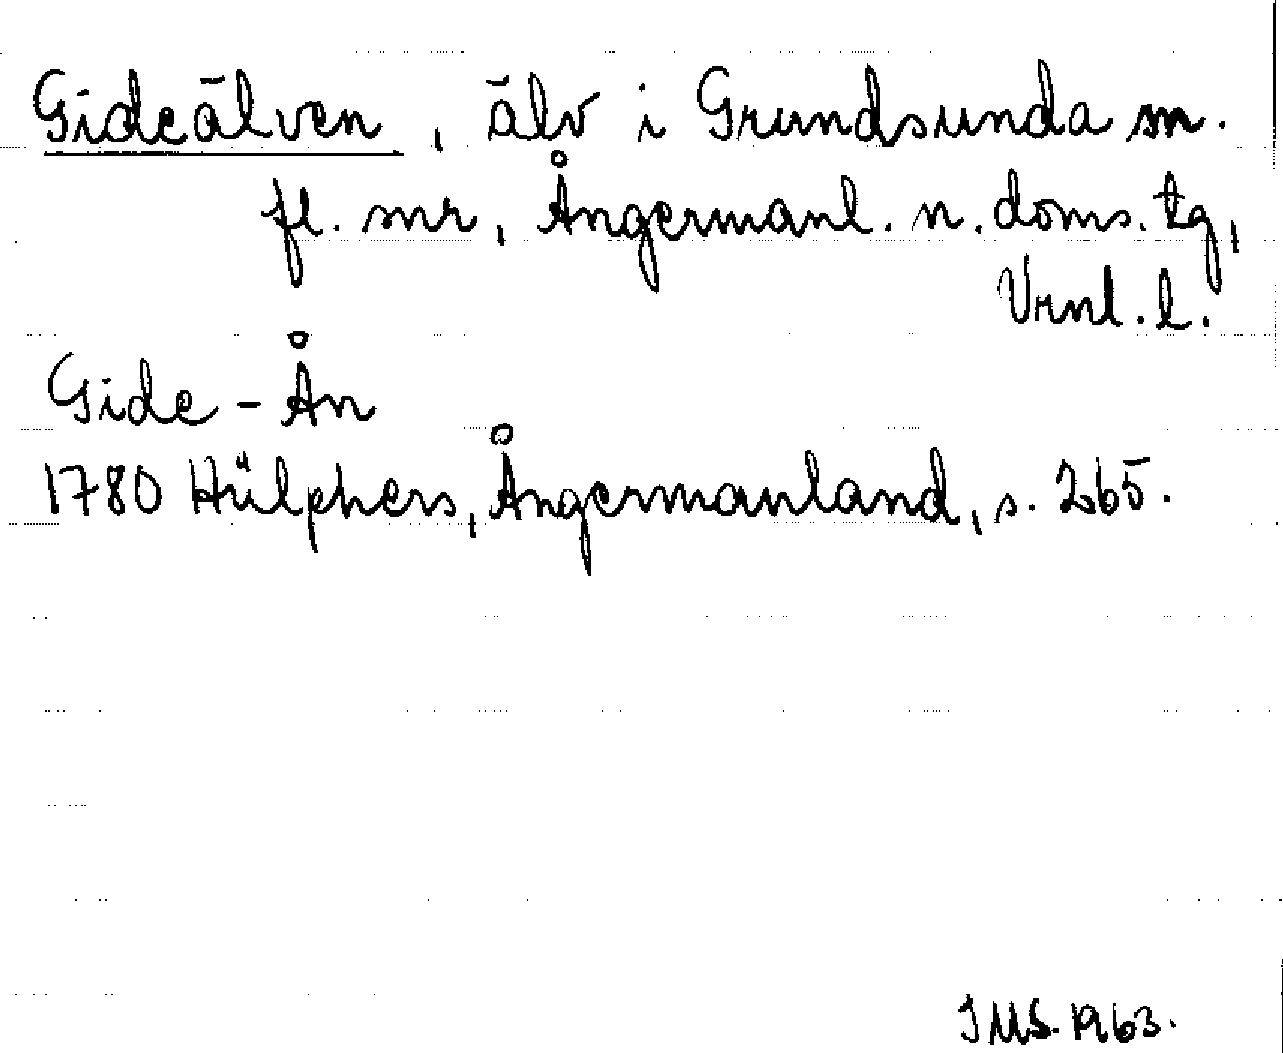 Gideälven, älv i Grundsunda m.
fl. snr, Ångermanl. n. doms. tg,
Vrnl. l.
Gide-Ån
1780 Hülphers, Ångermanland, s. 265.
IMS. 1963.